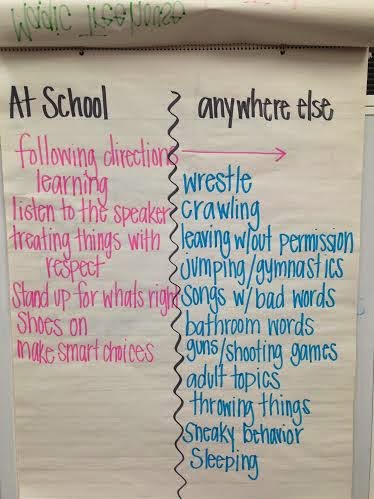 At School
following directions
learning
listen to the speaker
treating things with
respect
Stand up for whats right
Shoes on
make smart choices
anywhere else
wrestle
crawling
leaving w/out permission
jumping/gymnastics
Songs w/ bad words
bathroom words
guns/shooting games
adult topics
throwing things
Sneaky behavior
Sleeping